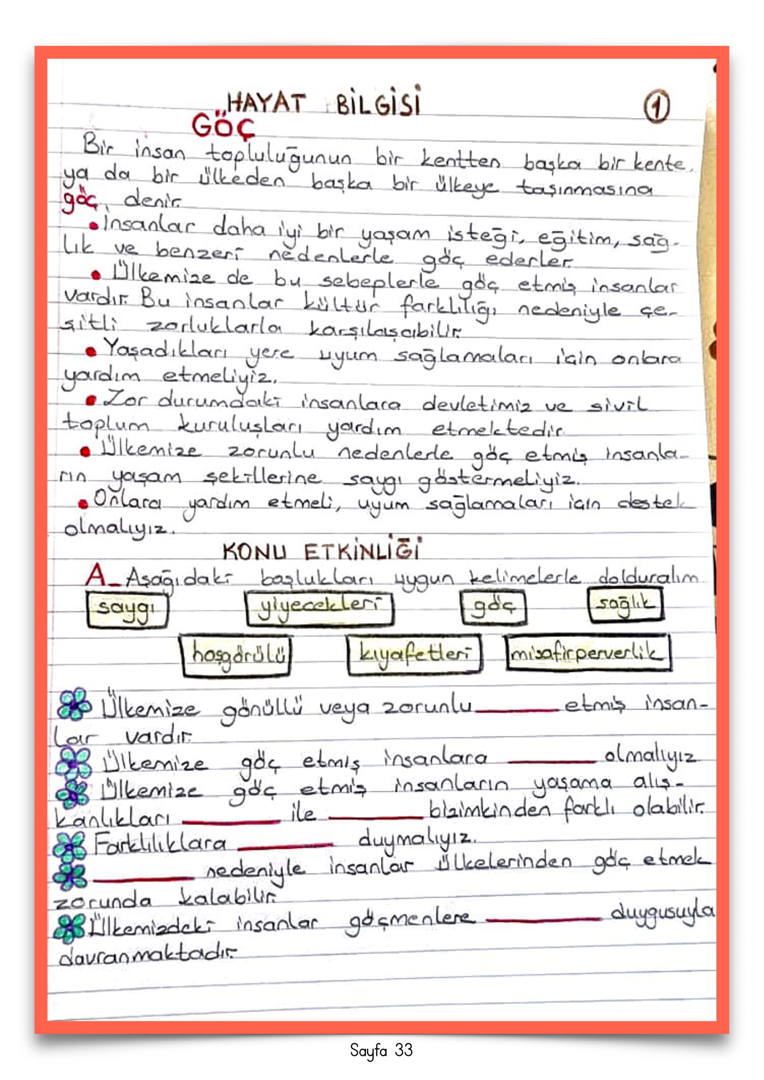 HAYAT BİLGİSİ 1
GÖÇ
Bir insan topluluğunun bir kentten başka bir kente,
ya da bir ülkeden başka bir ülkeye taşınmasına
göç, denir.
• İnsanlar daha iyi bir yaşam isteği, eğitim, sağ-
lık ve benzeri nedenlerle göç ederler.
• Ülkemize de bu sebeplerle göç etmiş insanlar
vardır. Bu insanlar kültür farklılığı nedeniyle çe-
şitli zorluklarla karşılaşabilir.
• Yaşadıkları yere uyum sağlamaları için onlara
yardım etmeliyiz.
• Zor durumdaki insanlara devletimiz ve sivil
toplum kuruluşları yardım etmektedir.
• Ülkemize zorunlu nedenlerle göç etmiş insanla-
rın yaşam şekillerine saygı göstermeliyiz.
• Onlara yardım etmeli, uyum sağlamaları için destek
olmalıyız.
KONU ETKİNLİĞİ
A- Aşağıdaki başlukları uygun kelimelerle dolduralım
saygı yiyecekleri göç sağlık
hoşgörülü kıyafetleri misafirperverlik
Ülkemize gönüllü veya zorunlu ______ etmiş insan-
lar vardır.
Ülkemize göç etmiş insanlara ______ olmalıyız
Ülkemize göç etmiş insanların yaşama alış-
kanlıkları ______ ile ______ bizimkinden farklı olabilir.
Farklılıklara ______ duymalıyız.
______ nedeniyle insanlar ülkelerinden göç etmek
zorunda kalabilir.
Ülkemizdeki insanlar göçmenlere ______ duygusuyla
davranmaktadır.
Sayfa 33